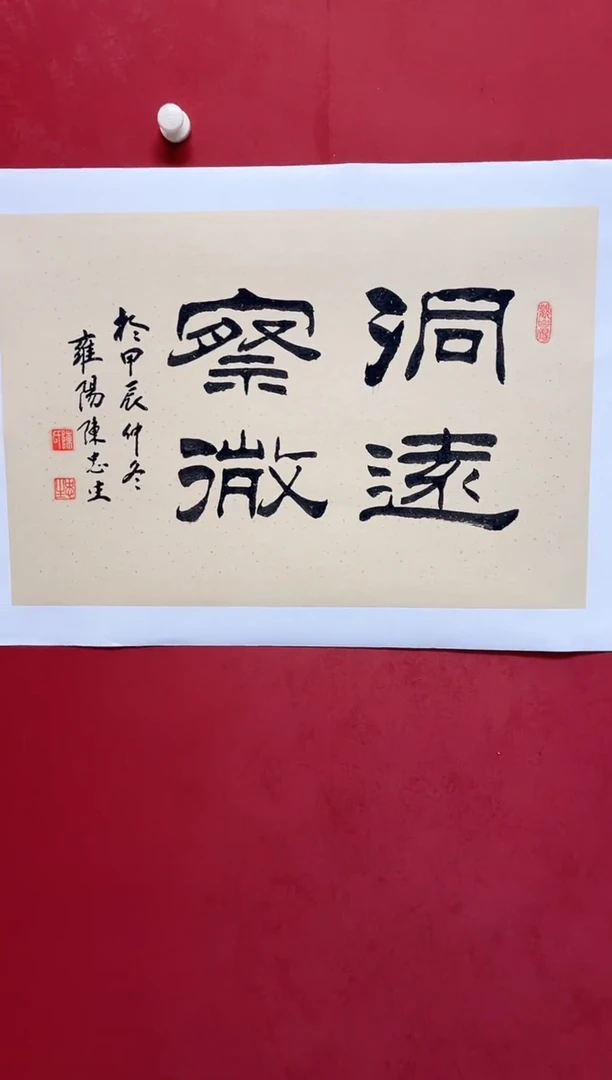 洞遠
察微
於甲辰仲冬
雍陽陳忠生